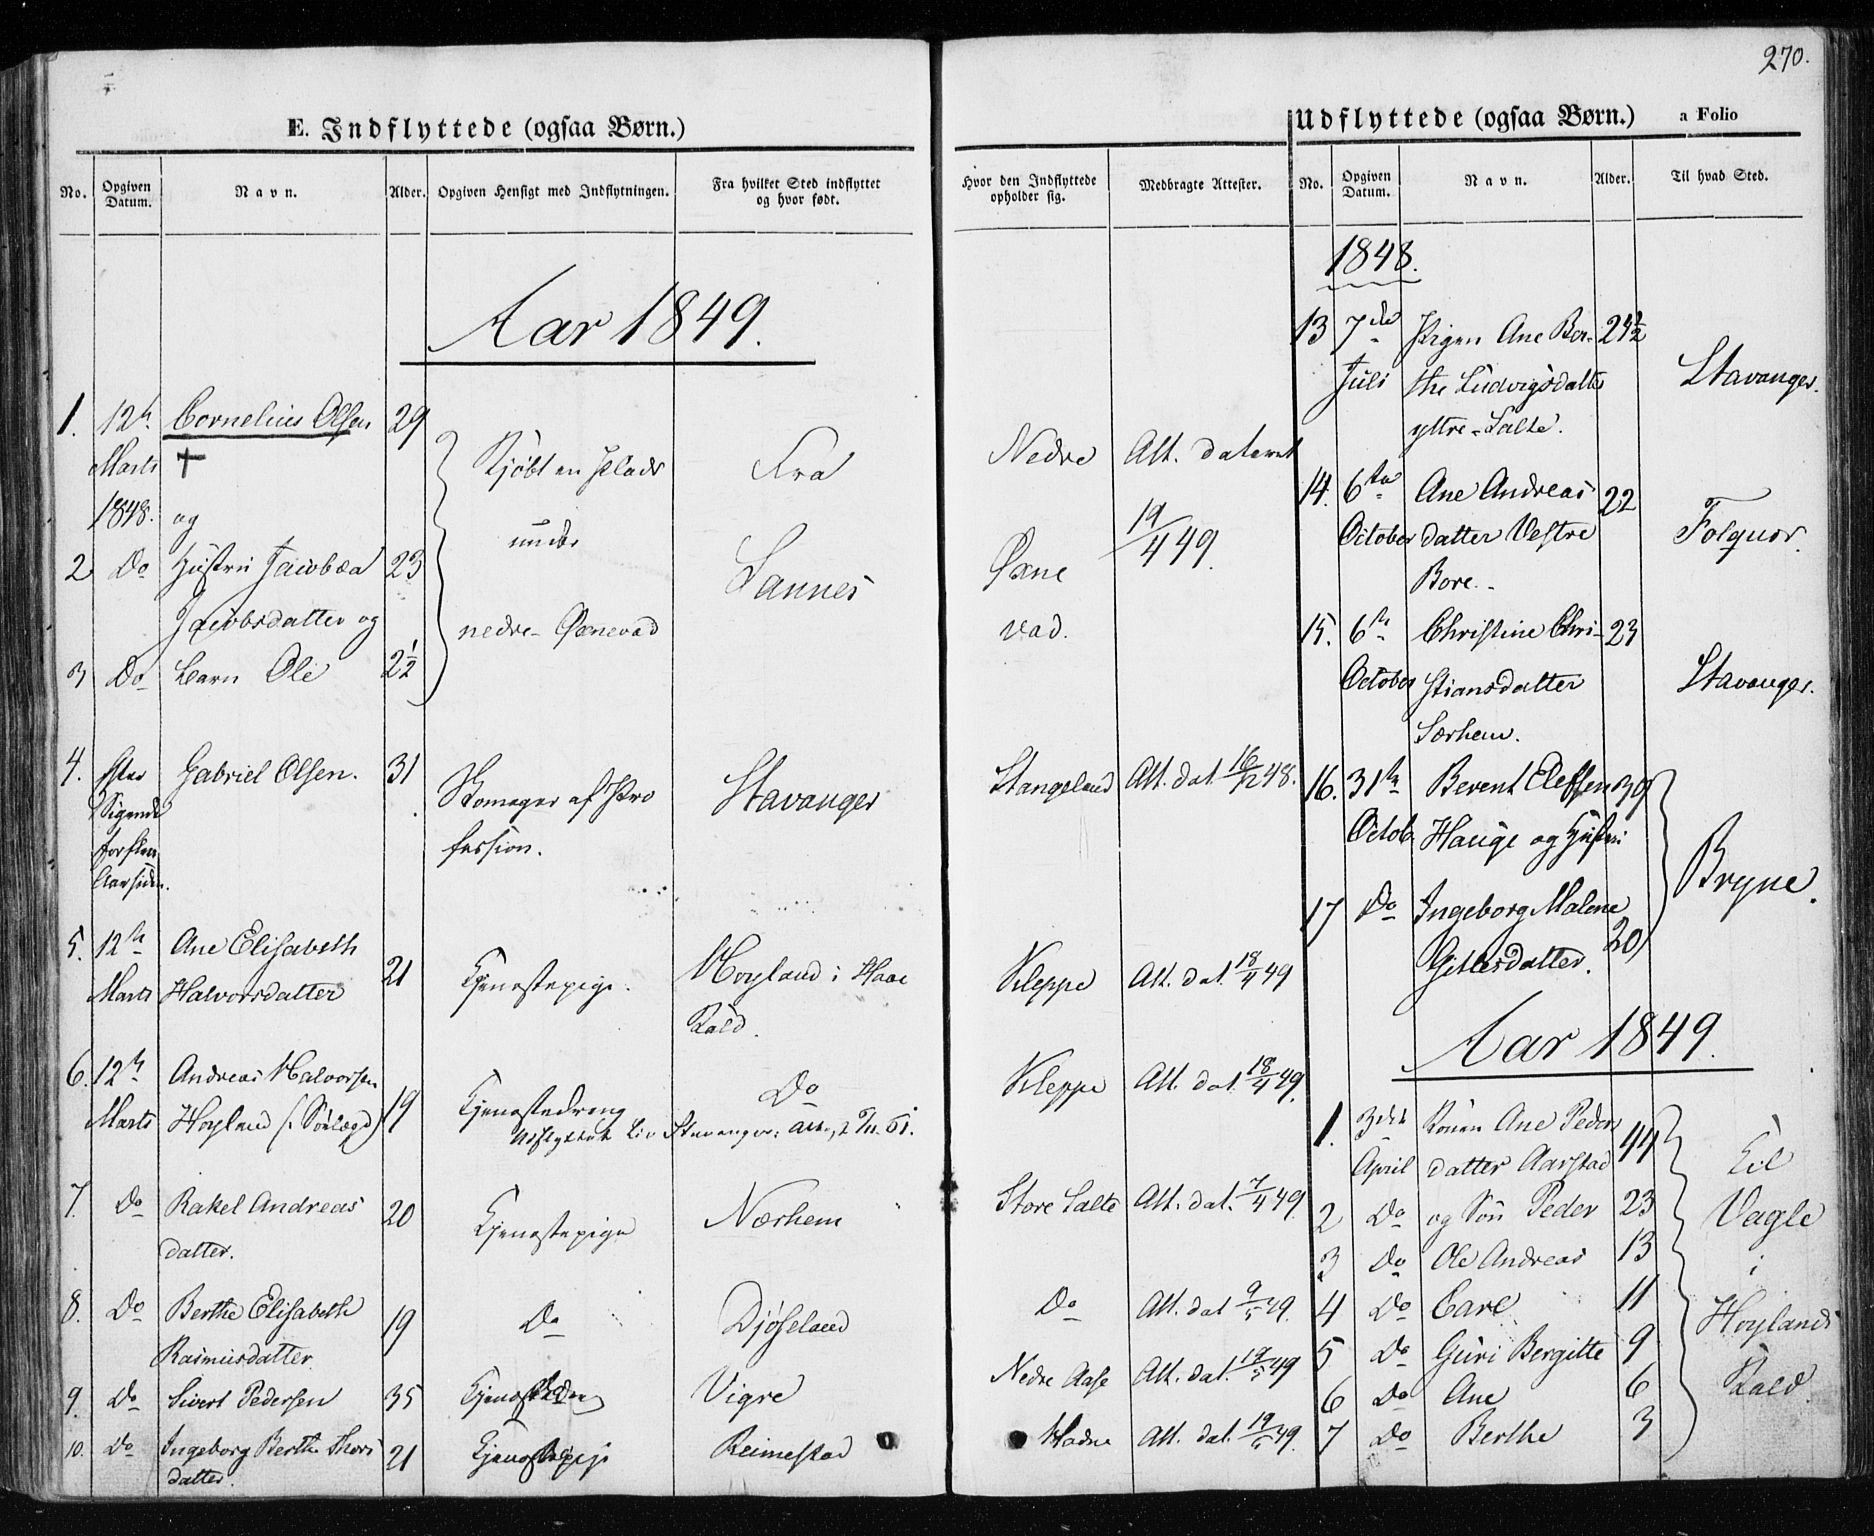 270.
E. Indflyttede (ogsaa Børn.)
No.
Opgiven Datum.
Navn.
Alder.
Opgiven Hensigt med Indflytningen.
Fra hvilket Sted indflyttet og hvor født.
Hvor den Indflyttede opholder sig.
Medbragte Attester.
Aar 1849.
1. 12te Cornelius Olsen 29
Marts †
1848. og
2 Do Hustru Jacobæa 23
Jacobsdatter og
3 Do Barn Ole 2½
Kjøbt en Plads
under
nedre Øxnevad
Fra
Sannes
Nedre
Øxne
vad.
Att. dateret
19/4 49.
4. Gabriel Olsen. 31
Sigende
for flere
Aar siden.
Skomager af Pro
fession.
Stavanger
Stangeland
Att. dat. 16/12 48.
5. 12te Ane Elisabeth 21
Marts Halvorsdatter
Tjenestepige.
Høyland i Haae
Kald.
Kleppe
Att. dat. 18/4 49
6. 12te Andreas Halvorsen
Marts Høyland 19
Tjenestedreng
Do
Kleppe
Att. dat. 18/4 49.
7. Do Rakel Andreas 20
datter.
Tjenestepige
Nærhem
Store Salte
Att. dat. 7/4 49.
8. Do Berthe Elisabeth 19
Rasmusdatter
Do
Djøseland
Do
Att. dat 9/5 49.
9. Do Sivert Pedersen 35
Vigre
Nedre Aase
Att. dat. 19/5 49
10. Do Ingeborg Berthe Thors 21
datter.
Tjenestepige
Reimestad
Hadne
Att. dat. 19/5 49.
Udflyttede (ogsaa Børn.)
a Folio
No.
Opgiven Datum.
Navn.
Alder.
Til hvad Sted.
1848.
13 7de Pigen Ane Ber- 24½
Juli the Ludvigsdatter
yttre Salte.
Stavanger.
14. 6te Ane Andreas 22
October datter Vestre
Bore.
Folquor.
15. 6te Christine Chri- 23
October stiansdatter
Særhem.
Stavanger.
16. 31te Berent Eleffsen 30
Octob. Hauge og Hustru
17 Do Ingeborg Malene
Gittesdatter. 20
Bryne.
Aar 1849.
1. 3die Konen Ane Peders 44
April datter Aarstad
2 Do og Søn Peder 23
3 Do Ole Andreas 13
4 Do Carl 11
5 Do Guri Bergitte 9
6 Do Ane 6
7 Do Berthe 3
Til
Vagle
i
Høylands
Kald.